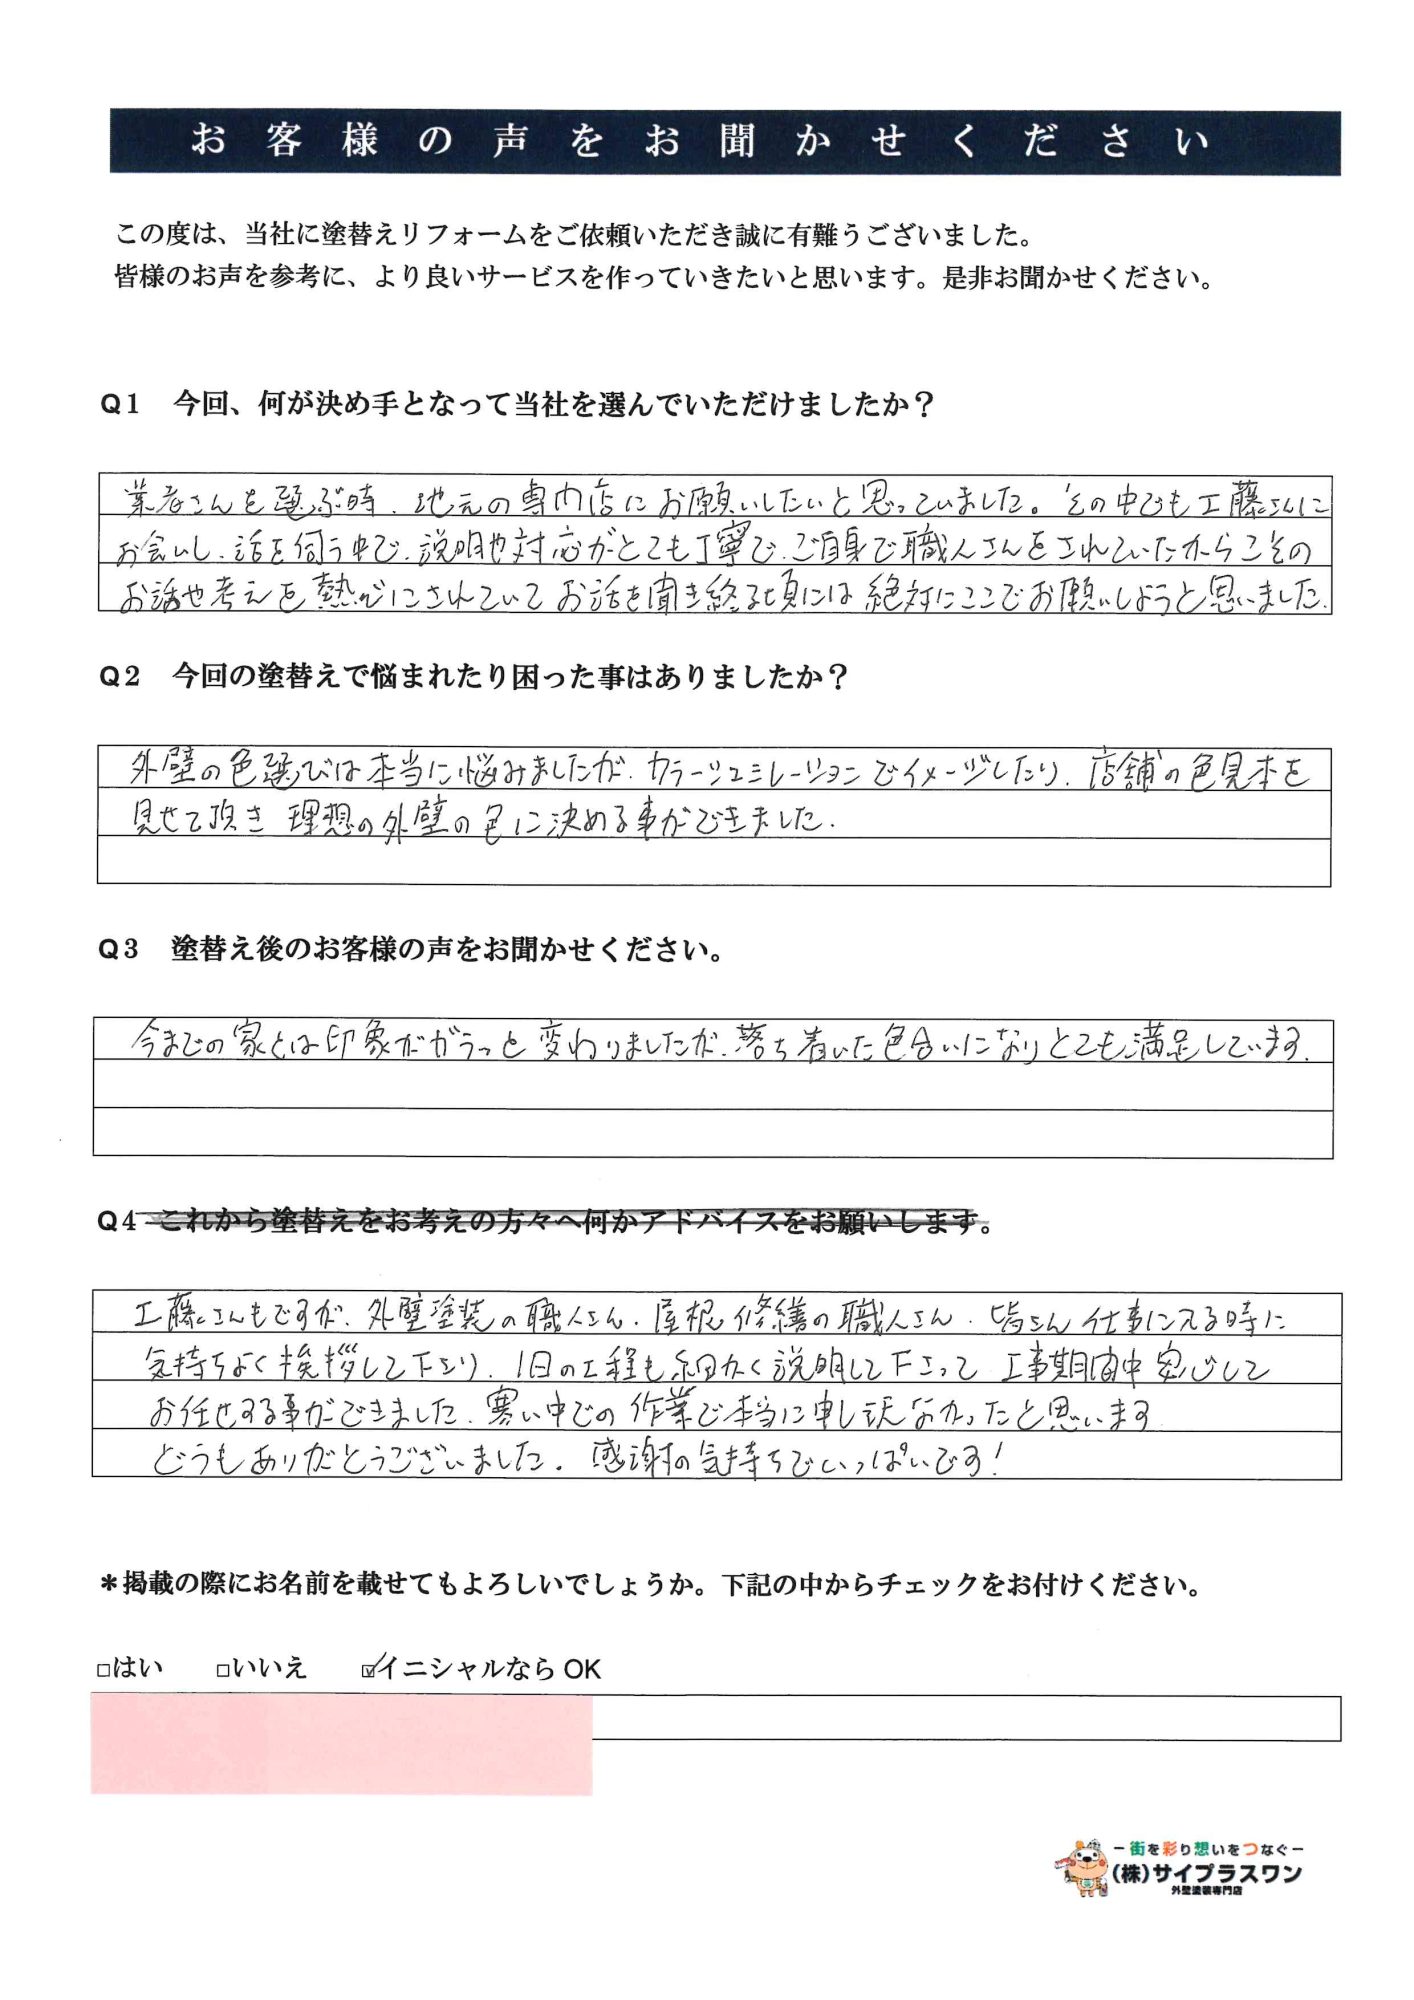 お客様の声をお聞かせください
この度は、当社に塗替えリフォームをご依頼いただき誠に有難うございました。
皆様のお声を参考に、より良いサービスを作っていきたいと思います。是非お聞かせください。
Q1 今回、何が決め手となって当社を選んでいただけましたか？
業者さんを選ぶ時、地元の専門店にお願いしたいと思っていました。その中でも工藤さんに
お会いし、話を伺う中で、説明や対応がとても丁寧で、ご自身で職人さんをされていたからこその
お話や考えを熱心にされていてお話を聞き終る頃には絶対にここでお願いしようと思いました。
Q2 今回の塗替えで悩まれたり困った事はありましたか？
外壁の色選びは本当に悩みましたが、カラーシュミレーションでイメージしたり、店舗の色見本を
見せて頂き 理想の外壁の色に決める事ができました。
Q3 塗替え後のお客様の声をお聞かせください。
今までの家とは印象がガラっと変わりましたが、落ち着いた色合いになりとても満足しています。
Q4 これから塗替えをお考えの方々へ何かアドバイスをお願いします。
工藤さんもですが、外壁塗装の職人さん、屋根修繕の職人さん、皆さん仕事に入る時に
気持ちよく挨拶して下さり、1日の工程も細かく説明して下さって 工事期間中安心して
お任せする事ができました。寒い中での作業で本当に申し訳なかったと思います
どうもありがとうございました。感謝の気持ちでいっぱいです！
＊掲載の際にお名前を載せてもよろしいでしょうか。下記の中からチェックをお付けください。
□はい □いいえ ☑イニシャルなら OK
－街を彩り想いをつなぐ－
（株）サイプラスワン
外壁塗装専門店